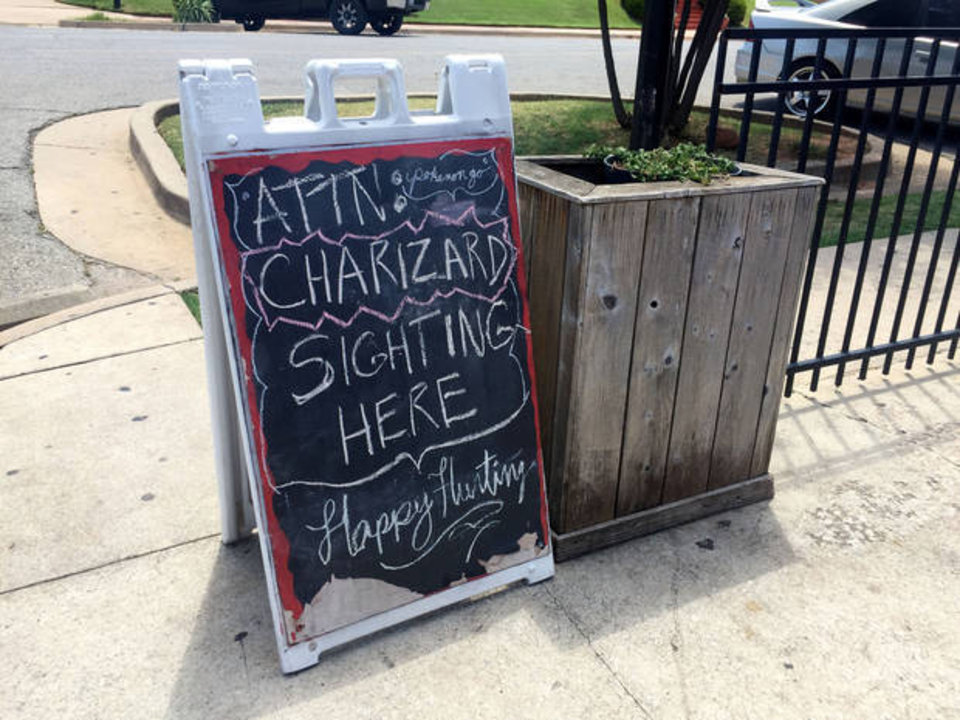 ATTN: @pokemongo
CHARIZARD
SIGHTING
HERE
Happy Hunting